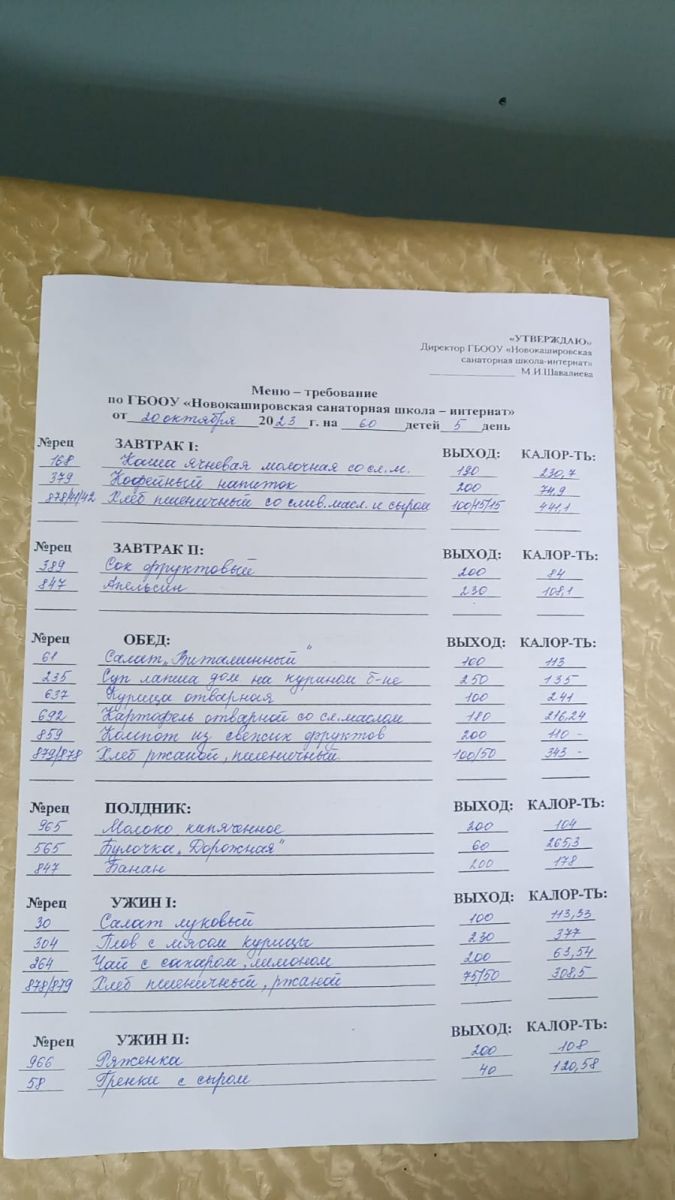 «УТВЕРЖДАЮ»
Директор ГБООУ «Новокашировская
санаторная школа-интернат»
________________ М.И.Шавалиева
Меню – требование
по ГБООУ «Новокашировская санаторная школа – интернат»
от 20 октября 2023 г. на 60 детей 5 день
№рец ЗАВТРАК I: ВЫХОД: КАЛОР-ТЬ:
168 Каша ячневая молочная со сл.м. 180 230,7
379 Кофейный напиток 200 74,9
878/41/42 Хлеб пшеничный со слив.масл. и сыром 100/15/15 441,1
№рец ЗАВТРАК II: ВЫХОД: КАЛОР-ТЬ:
389 Сок фруктовый 200 84
847 Апельсин 230 108,1
№рец ОБЕД: ВЫХОД: КАЛОР-ТЬ:
61 Салат „Витаминный" 100 113
235 Суп лапша дом на курином б-не 250 135
637 Курица отварная 100 241
692 Картофель отварной со сл.маслом 180 216,24
859 Компот из свежих фруктов 200 110 -
879/878 Хлеб ржаной, пшеничный 100/50 343 -
№рец ПОЛДНИК: ВЫХОД: КАЛОР-ТЬ:
965 Молоко кипяченное 200 104
565 Булочка „Дорожная" 60 265,3
847 Банан 200 178
№рец УЖИН I: ВЫХОД: КАЛОР-ТЬ:
30 Салат луковый 100 113,33
304 Плов с мясом курицы 230 377
264 Чай с сахаром, лимоном 200 63,54
878/879 Хлеб пшеничный, ржаной 75/50 308,5
№рец УЖИН II: ВЫХОД: КАЛОР-ТЬ:
966 Ряженка 200 108
58 Гренки с сыром 40 120,58